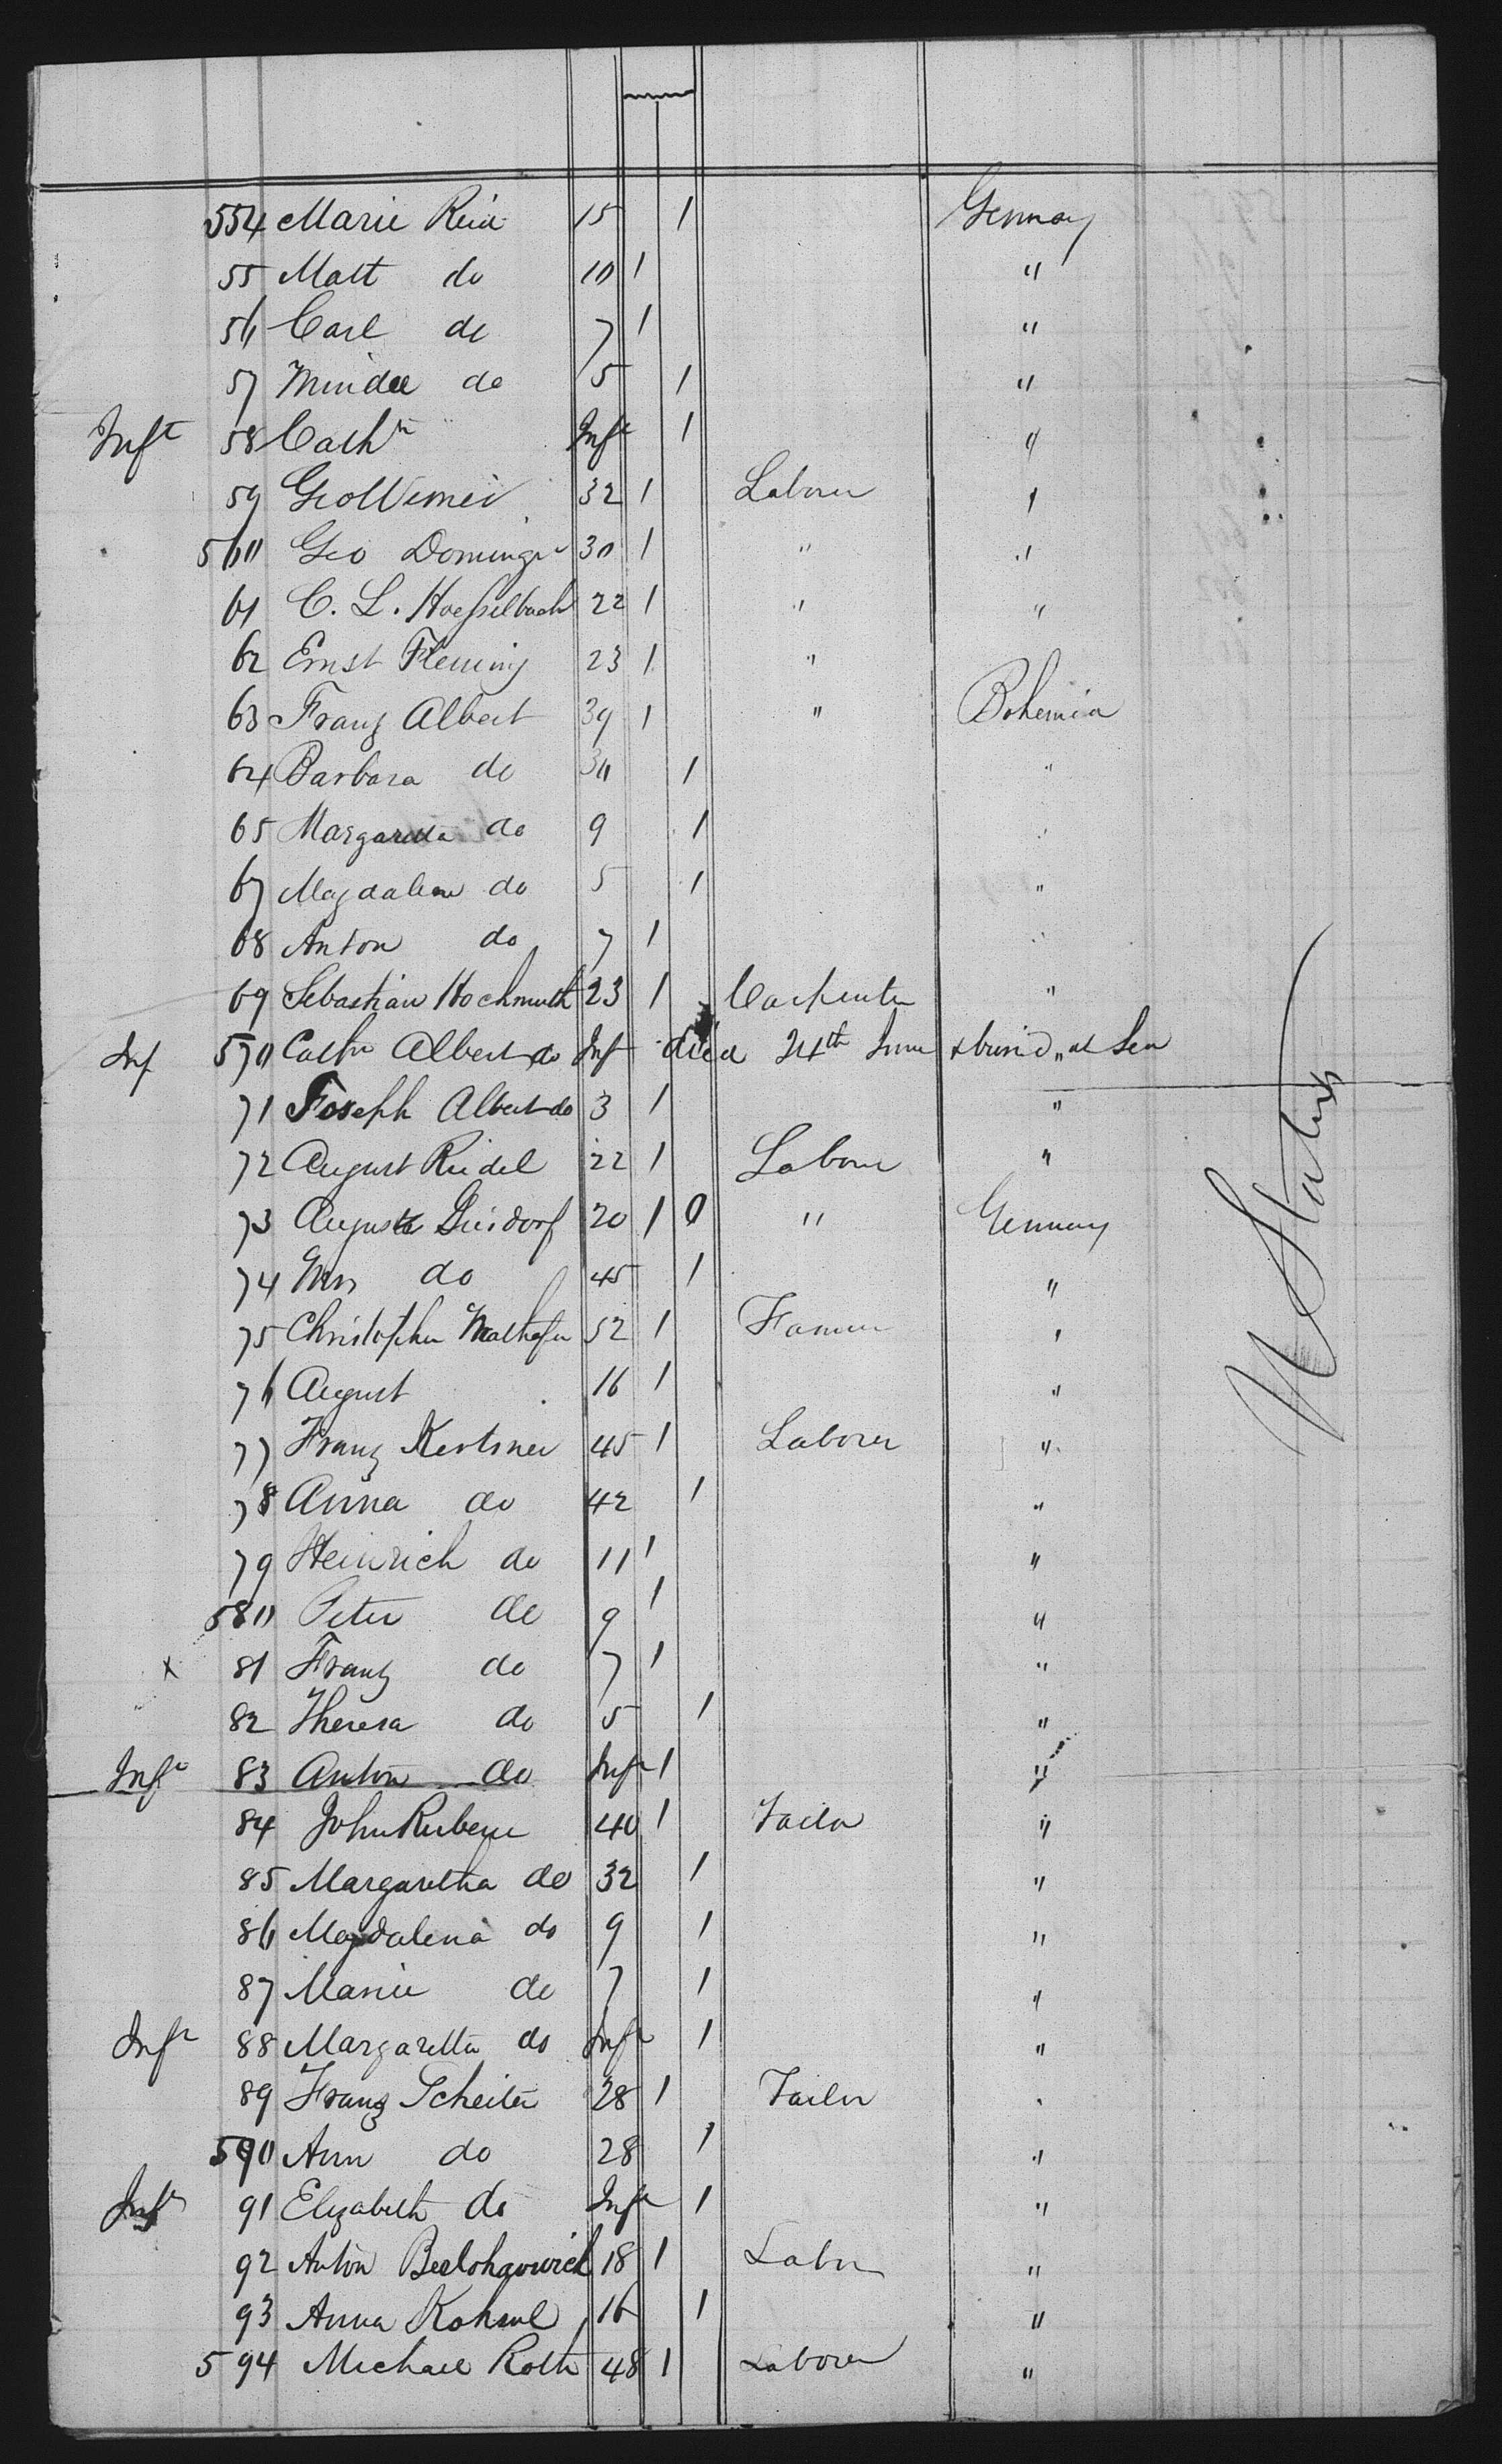 554 Marie Reid 15 1 Germany
55 Matt do 10 1 "
56 Carl do 7 1 "
57 do 5 1 "
Inft 58 Cathn Inft 1 "
59 Geo Werner 32 1 Laborer "
560 Geo 30 1 " "
61 C. L. Hoesselbach 22 1 " "
62 Ernst Fleming 23 1 " "
63 Franz Albert 39 1 " Bohemia
64 Barbara do 30 1 "
65 Margaretta do 9 1 "
67 Magdalene do 5 1 "
68 Anton do 7 1 "
69 Sebastian Hochmuth 23 1 Carpenter "
Inf 570 Cathn Albert do Inf died 24th June & buried at Sea
71 Joseph Albert do 3 1 "
72 August Riedel 22 1 Laborer "
73 August 20 1 0 " Germany
74 do 45 1 "
75 Christopher 52 1 Farmer "
76 August 16 1 "
77 Franz 45 1 Laborer "
78 Anna do 42 1 "
79 Heinrich do 11 1 "
580 Peter do 9 1 "
x 81 Franz do 7 1 "
82 Theresa do 5 1 "
Inft 83 Anton do Inft 1 "
84 John 40 1 Tailor "
85 Margaretha do 32 1 "
86 Magdalena do 9 1 "
87 Marie do 7 1 "
Inft 88 Margaretta do Inft 1 "
89 Franz Scheiter 28 1 Tailor "
590 Ann do 28 1 "
Inft 91 Elizabeth do Inft 1 "
92 Anton 18 1 Labor "
93 Anna 16 1 "
594 Michael Roth 48 1 Laborer "
U States